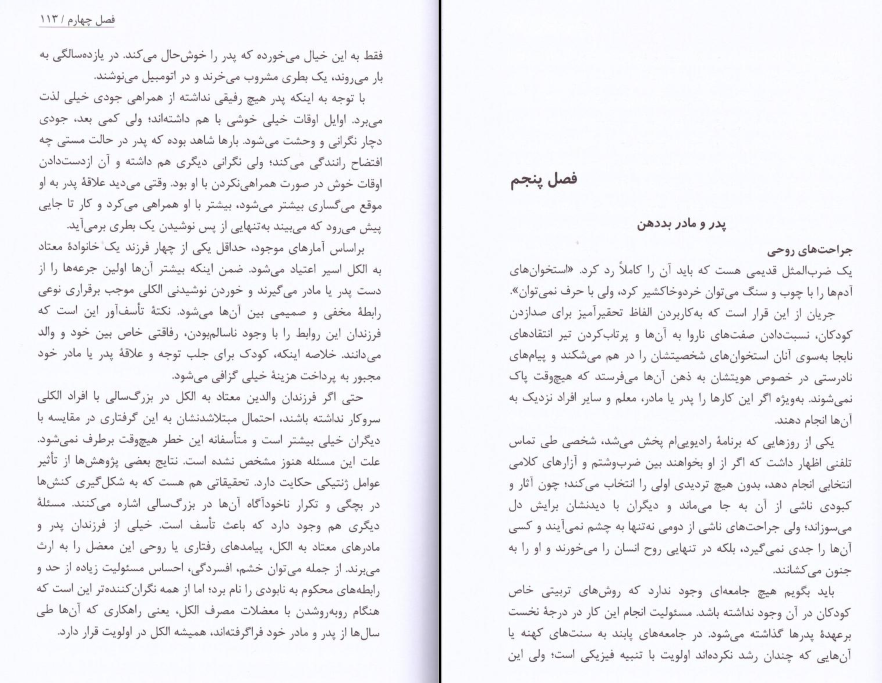 فصل چهارم / ۱۱۳
فقط به این خیال می‌خورده که پدر را خوش‌حال می‌کند. در یازده‌سالگی به
بار می‌روند، یک بطری مشروب می‌خرند و در اتومبیل می‌نوشند.
با توجه به اینکه پدر هیچ رفیقی نداشته از همراهی جودی خیلی لذت
می‌برد. اوایل اوقات خیلی خوشی با هم داشته‌اند؛ ولی کمی بعد، جودی
دچار نگرانی و وحشت می‌شود. بارها شاهد بوده که پدر در حالت مستی چه
افتضاح رانندگی می‌کند؛ ولی نگرانی دیگری هم داشته و آن ازدست‌دادن
اوقات خوش در صورت همراهی‌نکردن با او بود. وقتی می‌دید علاقهٔ پدر به او
موقع می‌گساری بیشتر می‌شود، بیشتر با او همراهی می‌کرد و کار تا جایی
پیش می‌رود که می‌بیند به‌تنهایی از پس نوشیدن یک بطری برمی‌آید.
براساس آمارهای موجود، حداقل یکی از چهار فرزند یک خانوادهٔ معتاد
به الکل اسیر اعتیاد می‌شود. ضمن اینکه بیشتر آن‌ها اولین جرعه‌ها را از
دست پدر یا مادر می‌گیرند و خوردن نوشیدنی الکلی موجب برقراری نوعی
رابطهٔ مخفی و صمیمی بین آن‌ها می‌شود. نکتهٔ تأسف‌آور این است که
فرزندان این روابط را با وجود ناسالم‌بودن، رفاقتی خاص بین خود و والد
می‌دانند. خلاصه اینکه، کودک برای جلب توجه و علاقهٔ پدر یا مادر خود
مجبور به پرداخت هزینهٔ خیلی گزافی می‌شود.
حتی اگر فرزندان والدین معتاد به الکل در بزرگ‌سالی با افراد الکلی
سروکار نداشته باشند، احتمال مبتلاشدنشان به این گرفتاری در مقایسه با
دیگران خیلی بیشتر است و متأسفانه این خطر هیچ‌وقت برطرف نمی‌شود.
علت این مسئله هنوز مشخص نشده است. نتایج بعضی پژوهش‌ها از تأثیر
عوامل ژنتیکی حکایت دارد. تحقیقاتی هم هست که به شکل‌گیری کنش‌ها
در بچگی و تکرار ناخودآگاه آن‌ها در بزرگ‌سالی اشاره می‌کنند. مسئلهٔ
دیگری هم وجود دارد که باعث تأسف است. خیلی از فرزندان پدر و
مادرهای معتاد به الکل، پیامدهای رفتاری یا روحی این معضل را به ارث
می‌برند. از جمله می‌توان خشم، افسردگی، احساس مسئولیت زیاده از حد و
رابطه‌های محکوم به نابودی را نام برد؛ اما از همه نگران‌کننده‌تر این است که
هنگام روبه‌روشدن با معضلات مصرف الکل، یعنی راهکاری که آن‌ها طی
سال‌ها از پدر و مادر خود فراگرفته‌اند، همیشه الکل در اولویت قرار دارد.
فصل پنجم
پدر و مادر بددهن
جراحت‌های روحی
یک ضرب‌المثل قدیمی هست که باید آن را کاملاً رد کرد. «استخوان‌های
آدم‌ها را با چوب و سنگ می‌توان خردوخاکشیر کرد، ولی با حرف نمی‌توان».
جریان از این قرار است که به‌کاربردن الفاظ تحقیرآمیز برای صدازدن
کودکان، نسبت‌دادن صفت‌های ناروا به آن‌ها و پرتاب‌کردن تیر انتقادهای
نابجا به‌سوی آنان استخوان‌های شخصیتشان را در هم می‌شکند و پیام‌های
نادرستی در خصوص هویتشان به ذهن آن‌ها می‌فرستد که هیچ‌وقت پاک
نمی‌شوند. به‌ویژه اگر این کارها را پدر یا مادر، معلم و سایر افراد نزدیک به
آن‌ها انجام دهند.
یکی از روزهایی که برنامهٔ رادیویی‌ام پخش می‌شد، شخصی طی تماس
تلفنی اظهار داشت که اگر از او بخواهند بین ضرب‌وشتم و آزارهای کلامی
انتخابی انجام دهد، بدون هیچ تردیدی اولی را انتخاب می‌کند؛ چون آثار و
کبودی ناشی از آن به جا می‌ماند و دیگران با دیدنشان برایش دل
می‌سوزاند؛ ولی جراحت‌های ناشی از دومی نه‌تنها به چشم نمی‌آیند و کسی
آن‌ها را جدی نمی‌گیرد، بلکه در تنهایی روح انسان را می‌خورند و او را به
جنون می‌کشانند.
باید بگویم هیچ جامعه‌ای وجود ندارد که روش‌های تربیتی خاص
کودکان در آن وجود نداشته باشد. مسئولیت انجام این کار در درجهٔ نخست
برعهدهٔ پدرها گذاشته می‌شود. در جامعه‌های پابند به سنت‌های کهنه یا
آن‌هایی که چندان رشد نکرده‌اند اولویت با تنبیه فیزیکی است؛ ولی این